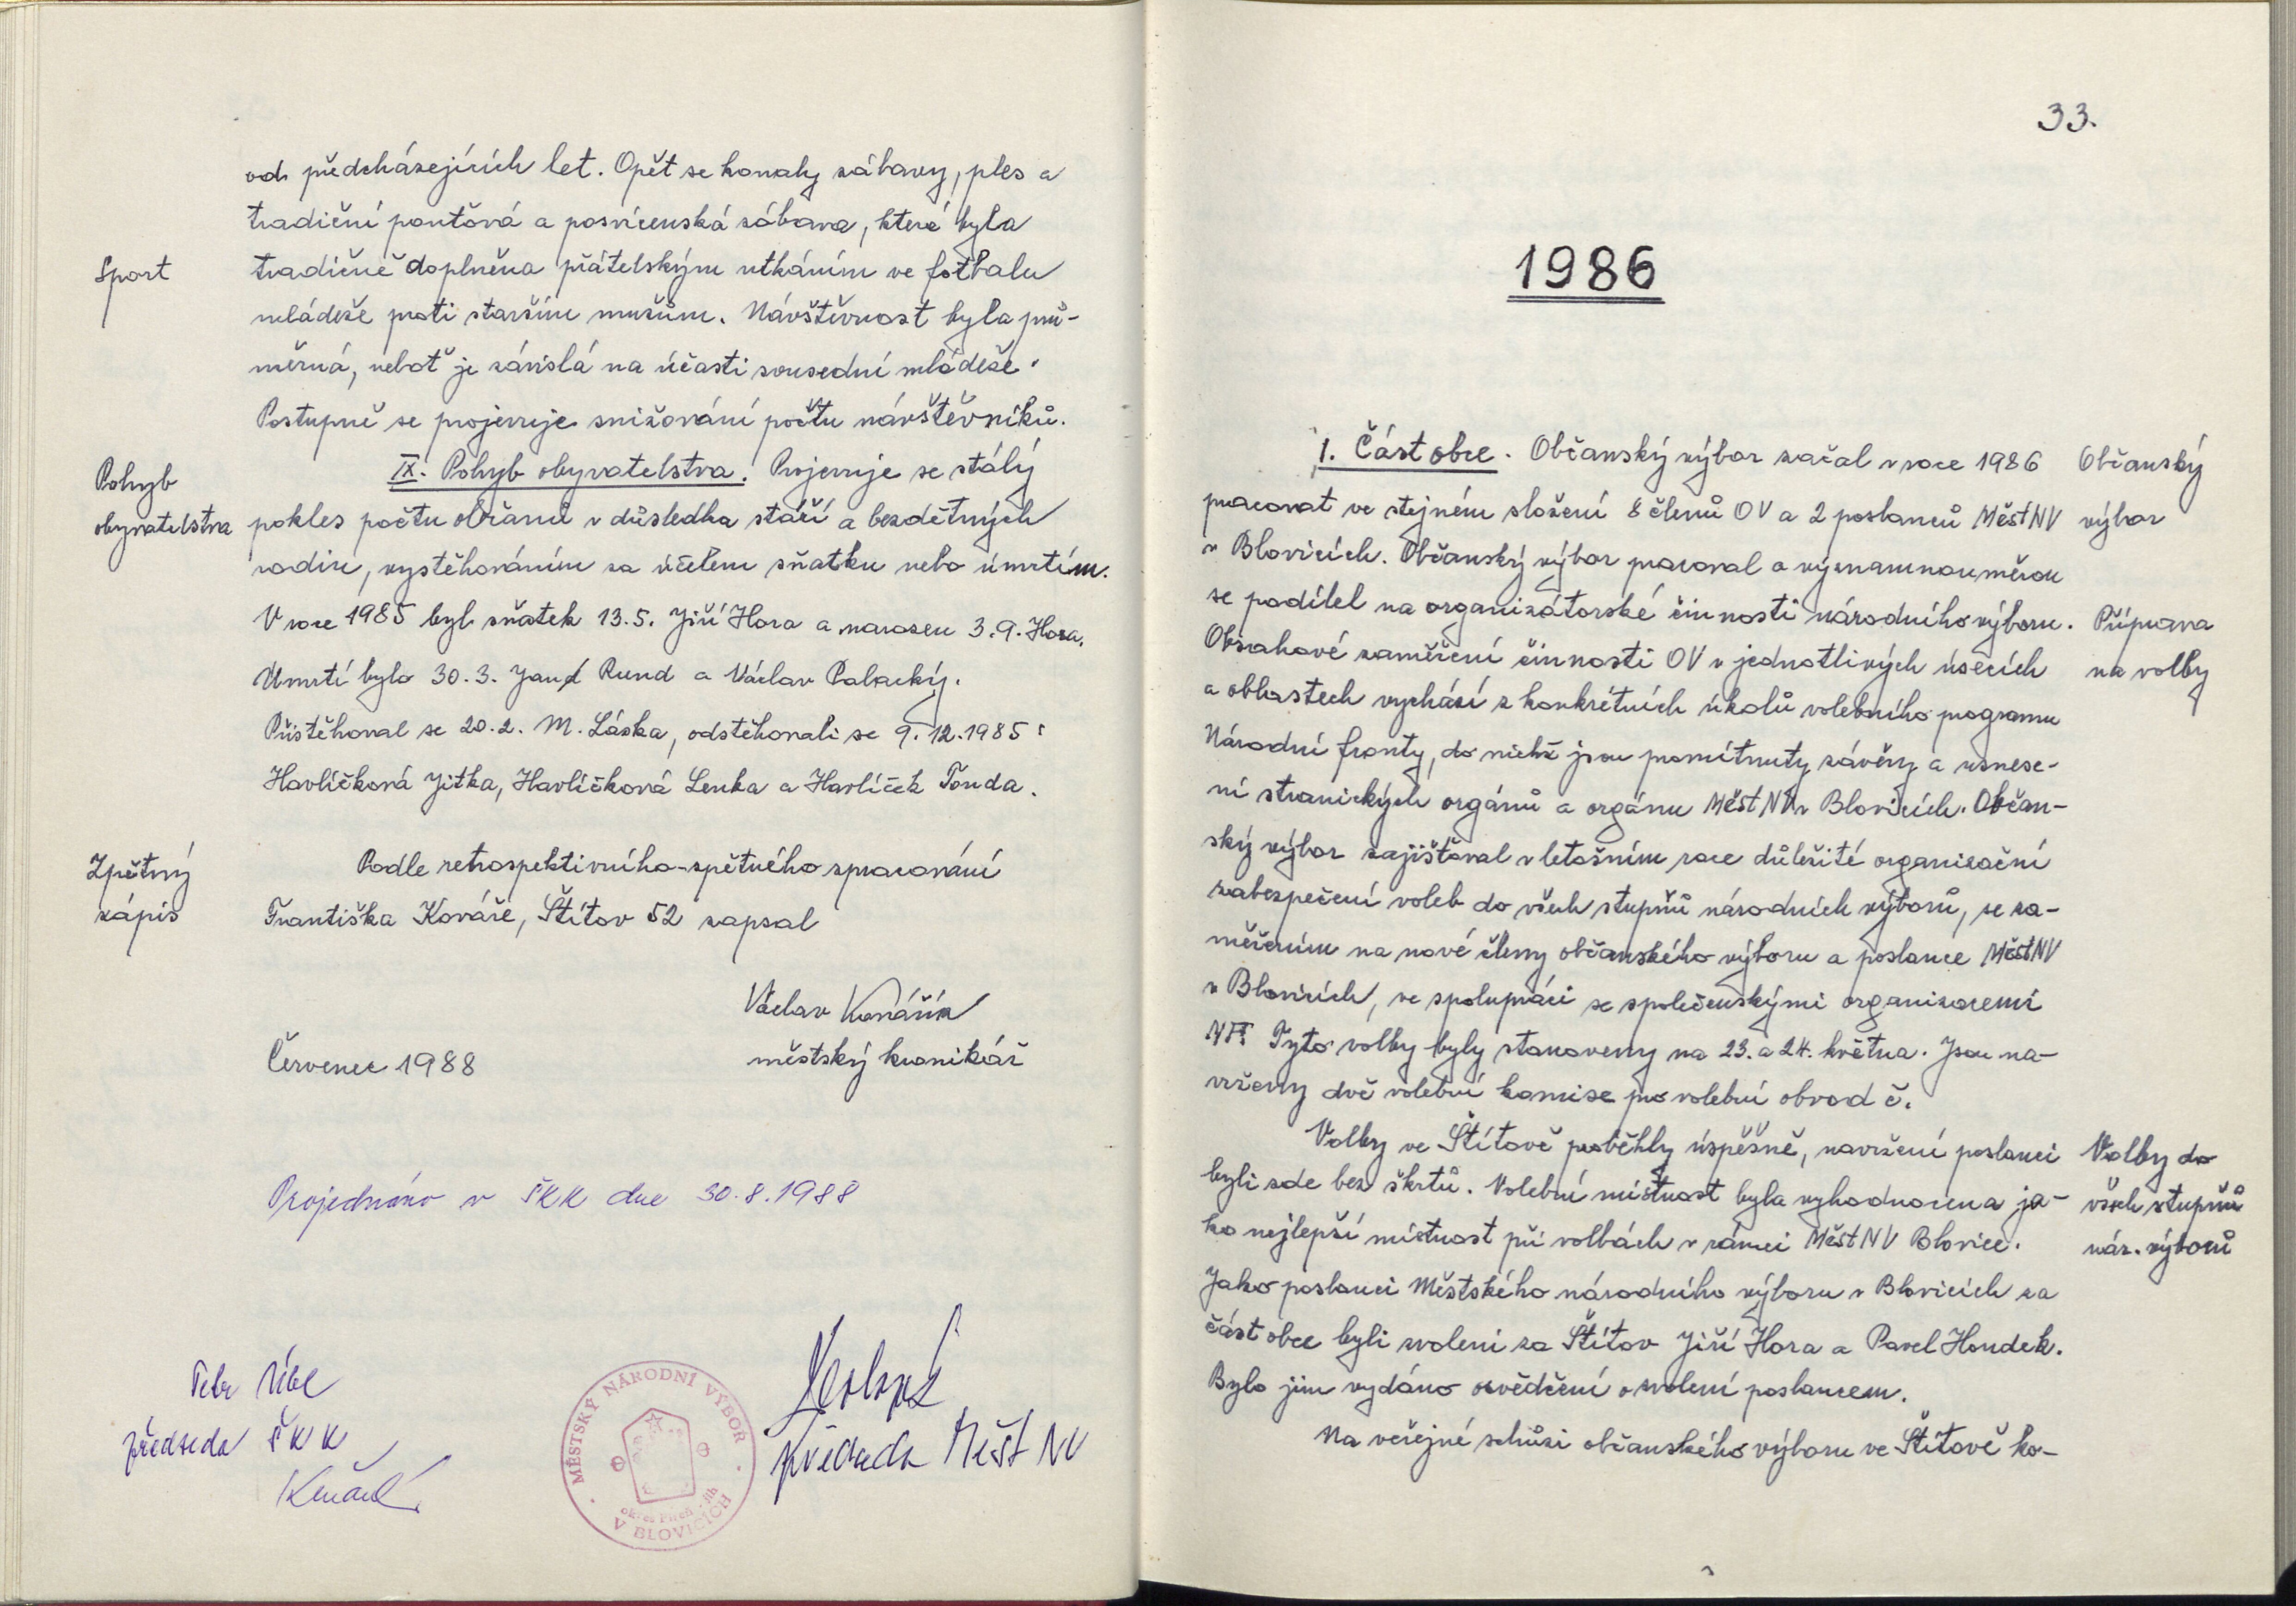 od předcházejících let. Opět se konaly zábavy, ples a
tradiční pouťová a posvícenská zábava, která byla
Sport
tradičně doplněna přátelským utkáním ve fotbalu
mládeže proti starším mužům. Návštěvnost byla prů-
měrná, neboť je závislá na účasti sousední mládeže.
Postupně se projevuje snižování počtu návštěvníků.
Pohyb
obyvatelstva
IX. Pohyb obyvatelstva. Projevuje se stálý
pokles počtu občanů v důsledka stáří a bezdětných
rodin, vystěhováním za účelem sňatku nebo úmrtím.
V roce 1985 byl sňatek 13.5. Jiří Hora a narozen 3.9. Hora.
Úmrtí bylo 30.3. Jan Rund a Václav Palacký.
Přistěhoval se 20.2. M. Láska, odstěhovali se 9.12.1985:
Havlíčková Jitka, Havlíčková Lenka a Havlíček Tonda.
Zpětný
zápis
Podle retrospektivního-zpětného zpracování
Františka Kováře, Štítov 52 zapsal
Václav
městský kronikář
Červenec 1988
Projednáno v ŠKK dne 30.8.1988
Petr
předseda ŠKK
MĚSTSKÝ NÁRODNÍ VÝBOR
okres Plzeň - jih
V BLOVICÍCH
předseda Měst NV
33.
1986
I. Část obce. Občanský výbor začal v roce 1986
Občanský
výbor
pracovat ve stejném složení 8 členů OV a 2 poslanců MěstNV
v Blovicích. Občanský výbor pracoval a významnou měrou
se podílel na organizátorské činnosti národního výboru.
Příprava
na volby
Obsahové zaměření činnosti OV v jednotlivých úsecích
a oblastech vychází z konkrétních úkolů volebního programu
Národní fronty, do nichž jsou promítnuty závěry a usnese-
ní stranických orgánů a orgánu MěstNV v Blovicích. Občan-
ský výbor zajišťoval v letošním roce důležité organizační
zabezpečení voleb do všech stupňů národních výborů, se za-
měřením na nové členy občanského výboru a poslance MěstNV
v Blovicích, ve spolupráci se společenskými organizacemi
NF. Tyto volby byly stanoveny na 23. a 24. května. Jsou na-
vrženy dvě volební komise pro volební obvod č.
Volby ve Štítově proběhly úspěšně, navržení poslanci
Volby do
všech stupňů
nár. výborů
byli zde bez škrtů. Volební místnost byla vyhodnocena ja-
ko nejlepší místnost při volbách v rámci MěstNV Blovice.
Jako poslanci Městského národního výboru v Blovicích za
část obce byli zvoleni za Štítov Jiří Hora a Pavel Houdek.
Bylo jim vydáno osvědčení o zvolení poslancem.
Na veřejné schůzi občanského výboru ve Štítově ko-